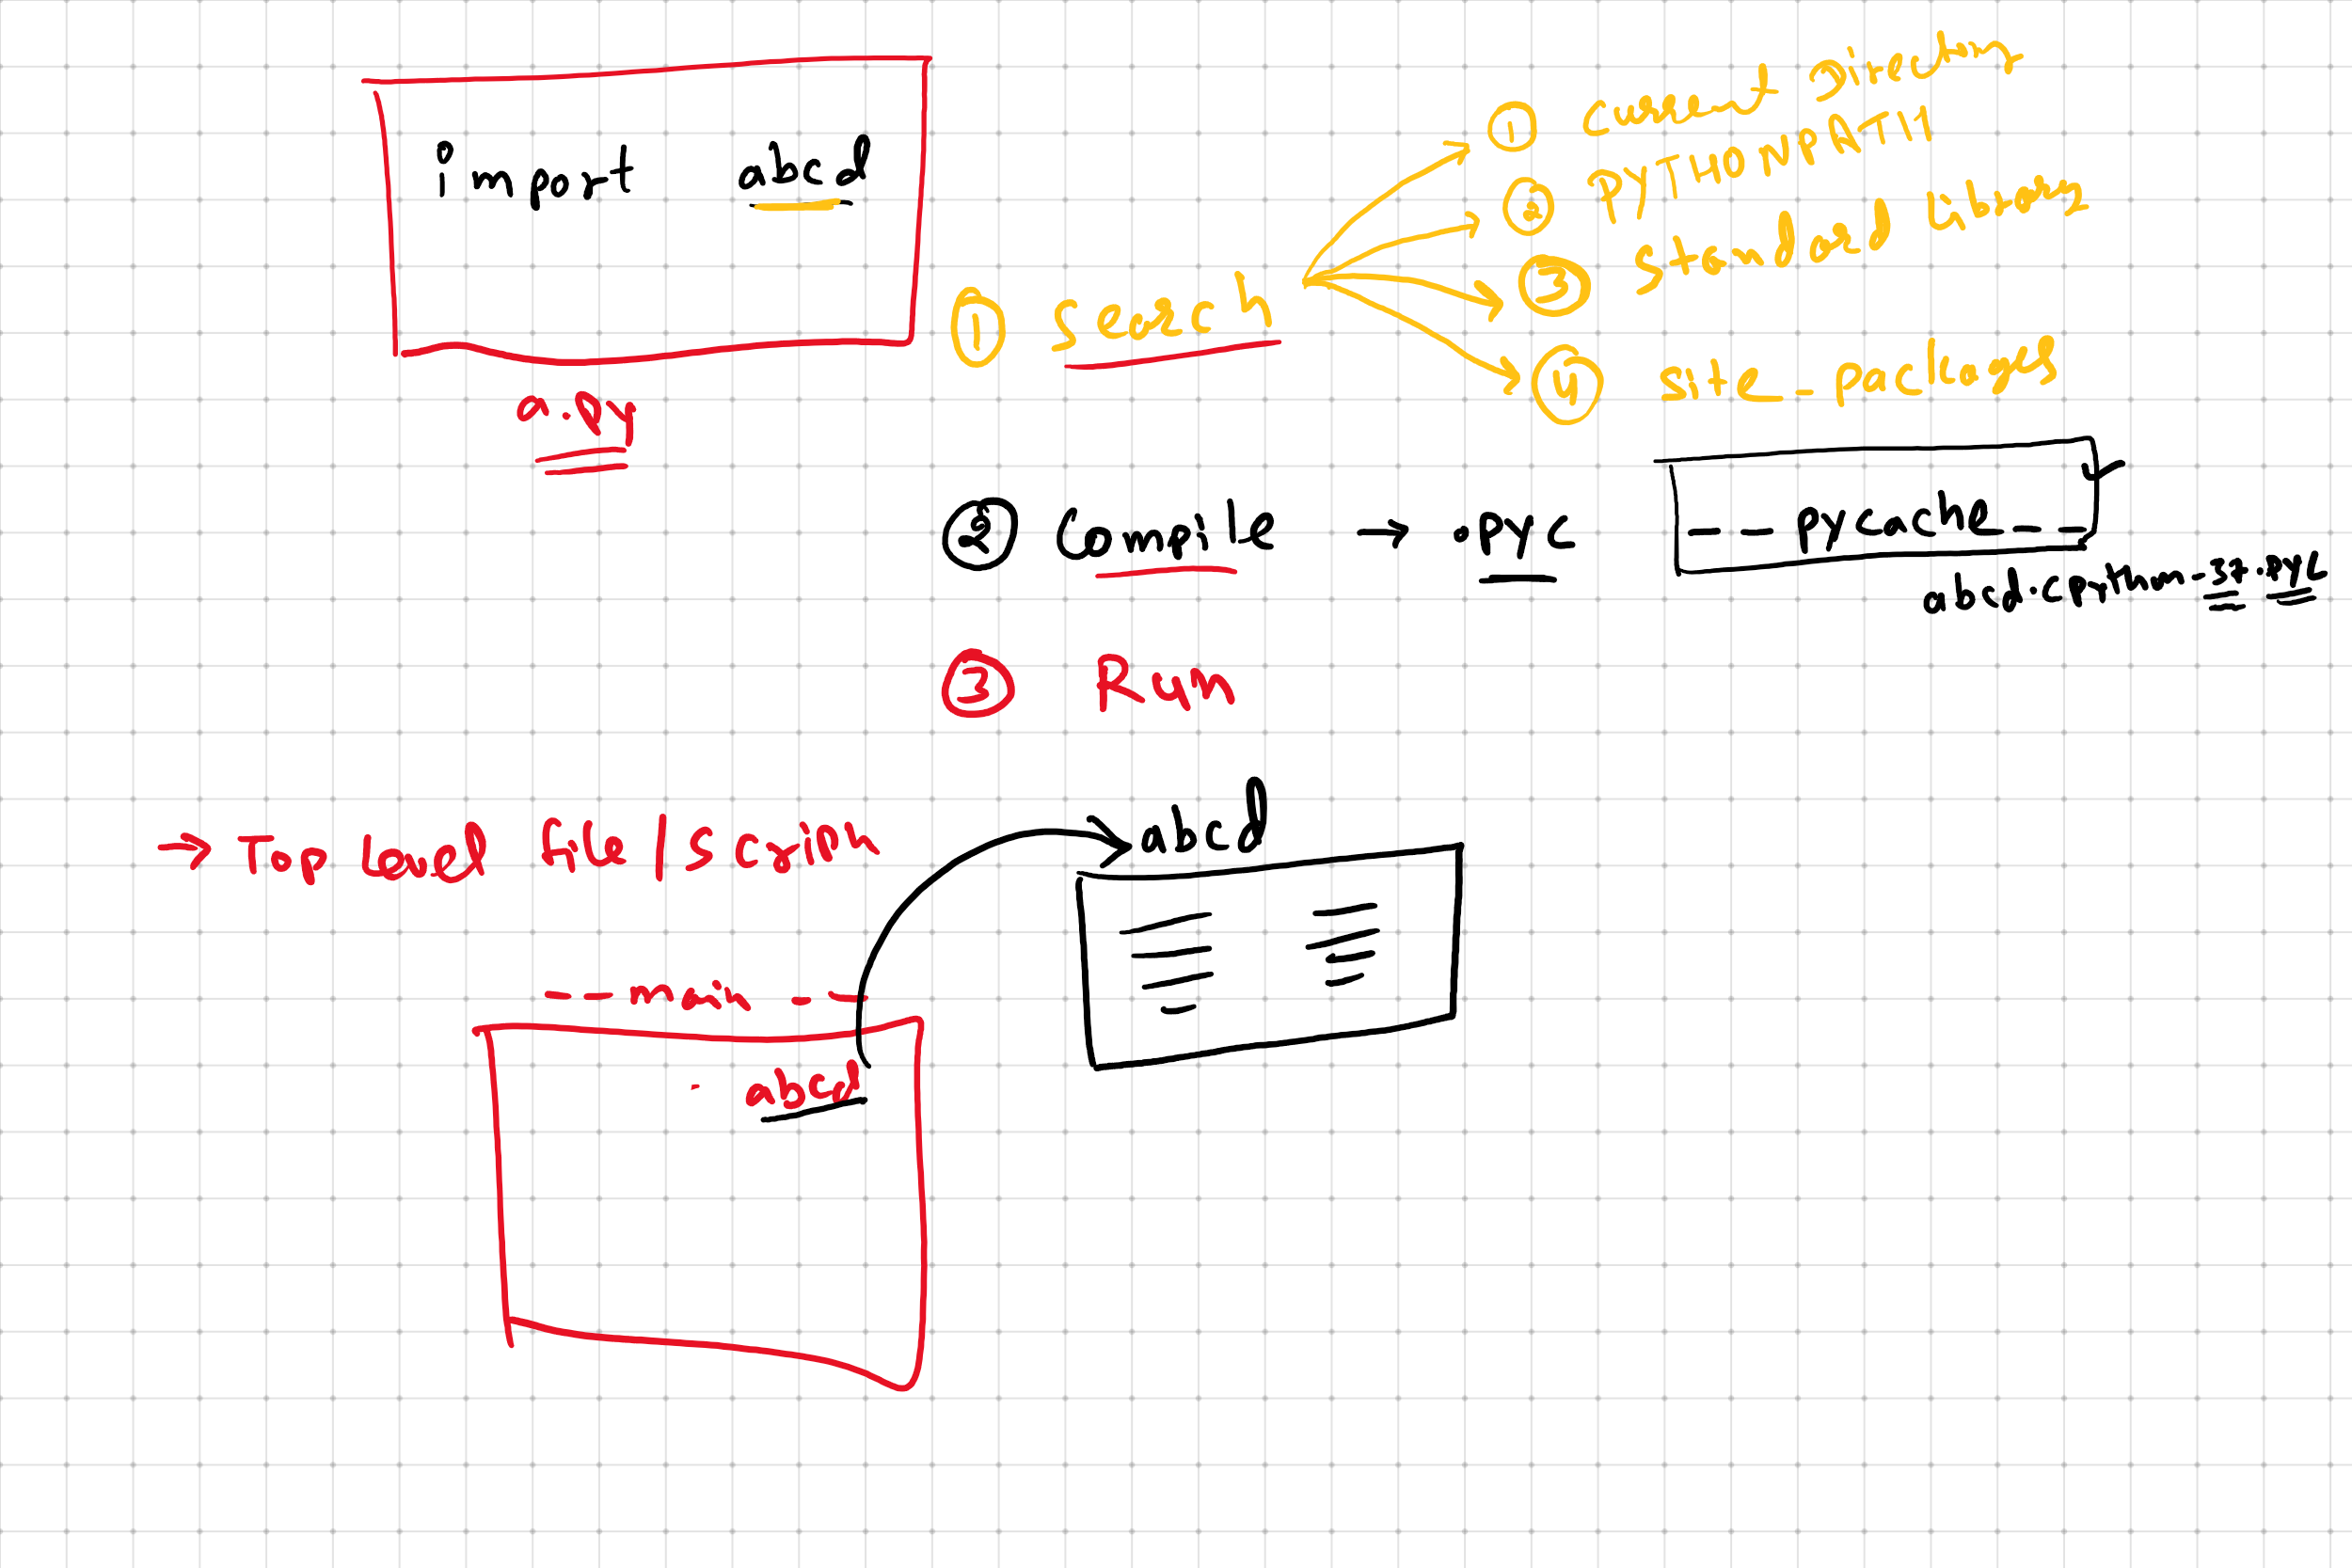 import abcd
a.py
① Search
① Current Directory
② PYTHONPATH
③ Standard library
④ site_packages
② Compile → .pyc
__pycache__
abcd.cpython-37.pyc
③ Run
→ Top level file / Script
__main__
abcd
abcd